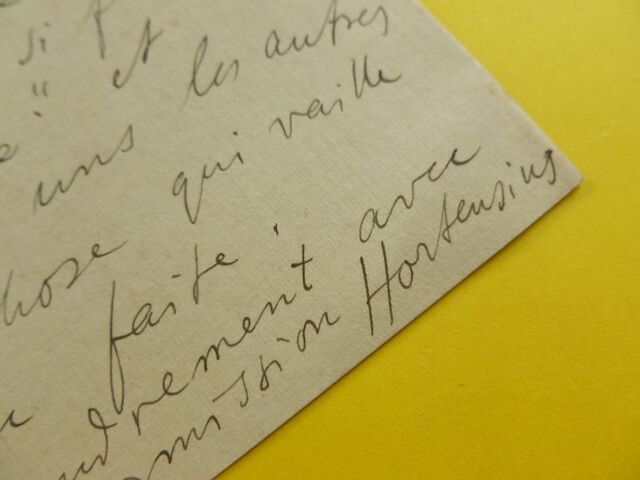 si
" et
uns les autres
hose qui vaille
faite. avec
drement
mission Hortensius